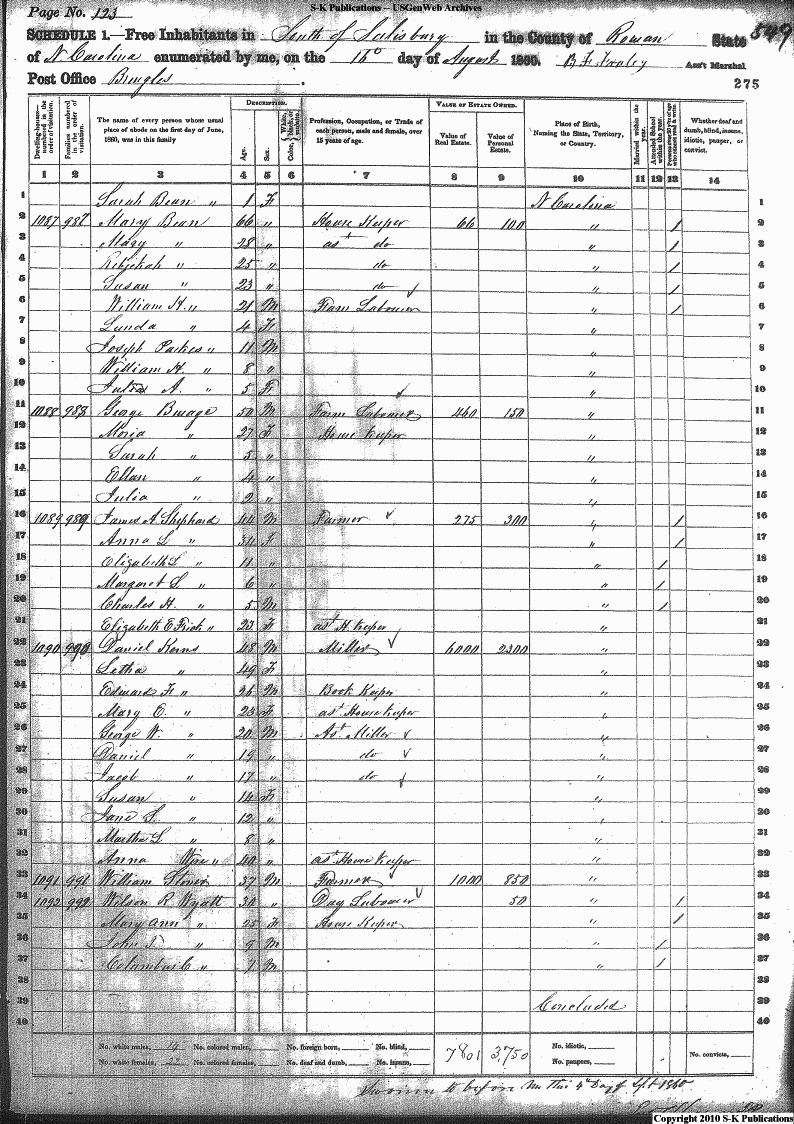 S-K Publications – USGenWeb Archives
Page No. 123
SCHEDULE 1.—Free Inhabitants in South of Salisbury in the County of Rowan State 549
of N Carolina enumerated by me, on the 15° day of August 1860. B F Fraley Ass't Marshal
Post Office Bringles 275
Dwelling-houses—numbered in the order of visitation.
Families numbered in the order of visitation.
The name of every person whose usual place of abode on the first day of June, 1860, was in this family
DESCRIPTION.
Age.
Sex.
Color, White, black, or mulatto.
Profession, Occupation, or Trade of each person, male and female, over 15 years of age.
VALUE OF ESTATE OWNED.
Value of Real Estate.
Value of Personal Estate.
Place of Birth, Naming the State, Territory, or Country.
Married within the year.
Attended School within the year.
Persons over 20 y'rs of age who cannot read & write
Whether deaf and dumb, blind, insane, idiotic, pauper, or convict.
1 2 3 4 5 6 7 8 9 10 11 12 13 14
1 Sarah Bean " 1 F N Carolina 1
2 1087 987 Mary Bean 66 " House Keeper 66 100 " / 2
3 Mary " 28 " ast do " / 3
4 " 25 " do " / 4
5 Susan " 23 " do " / 5
6 William H. " 21 M Farm Labourer " / 6
7 Lunda " 4 F " 7
8 Joseph " 11 M " 8
9 William H. " 8 " " 9
10 Julia A. " 5 F " 10
11 1088 988 George 50 M Farm Labourer 460 150 " 11
12 Maria " 27 F House Keeper " 12
13 Sarah " 5 " " 13
14 Ellen " 4 " " 14
15 Julia " 2 " " 15
16 1089 989 James A Shephard 44 M Farmer 275 300 " / 16
17 Anna L " 34 F " / 17
18 Elizabeth L " 11 " " / 18
19 Margaret L. " 6 " " / 19
20 Charles H. " 5 M " / 20
21 Elizabeth E Frick " 23 F ast H. Keeper " 21
22 1090 990 Daniel Kerns 48 M Miller 6000 2300 " 22
23 Letha " 49 F " 23
24 Edward F " 26 M Book Keeper " 24
25 Mary C. " 23 F ast House Keeper " 25
26 George W. " 20 M Ast. Miller " 26
27 Daniel " 19 " do " 27
28 Jacob " 17 " do " 28
29 Susan " 14 F " 29
30 Jane L. " 12 " " 30
31 Martha L " 8 " " 31
32 Anna " 40 " ast House Keeper " 32
33 1091 991 William 37 M Farmer 1000 850 " 33
34 1092 992 Wilson R Wyatt 30 " Day Labourer 50 " / 34
35 Mary Ann " 25 F House Keeper " / 35
36 John T. " 9 M " / 36
37 Columbus C " 1 M " / 37
38 38
39 Concluded 39
40 40
No. white males, 14 No. colored males, No. foreign born, No. blind, 7801 3,750 No. idiotic, No. convicts,
No. white females, 23 No. colored females, No. deaf and dumb, No. insane, No. paupers,
Sworn to before me this 4th Day of Sept 1860
Copyright 2010 S-K Publications